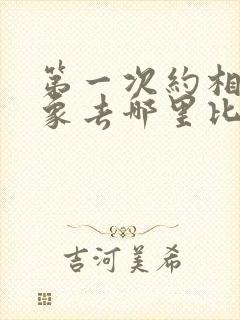 第一次约相
象去哪里比
吉河美希